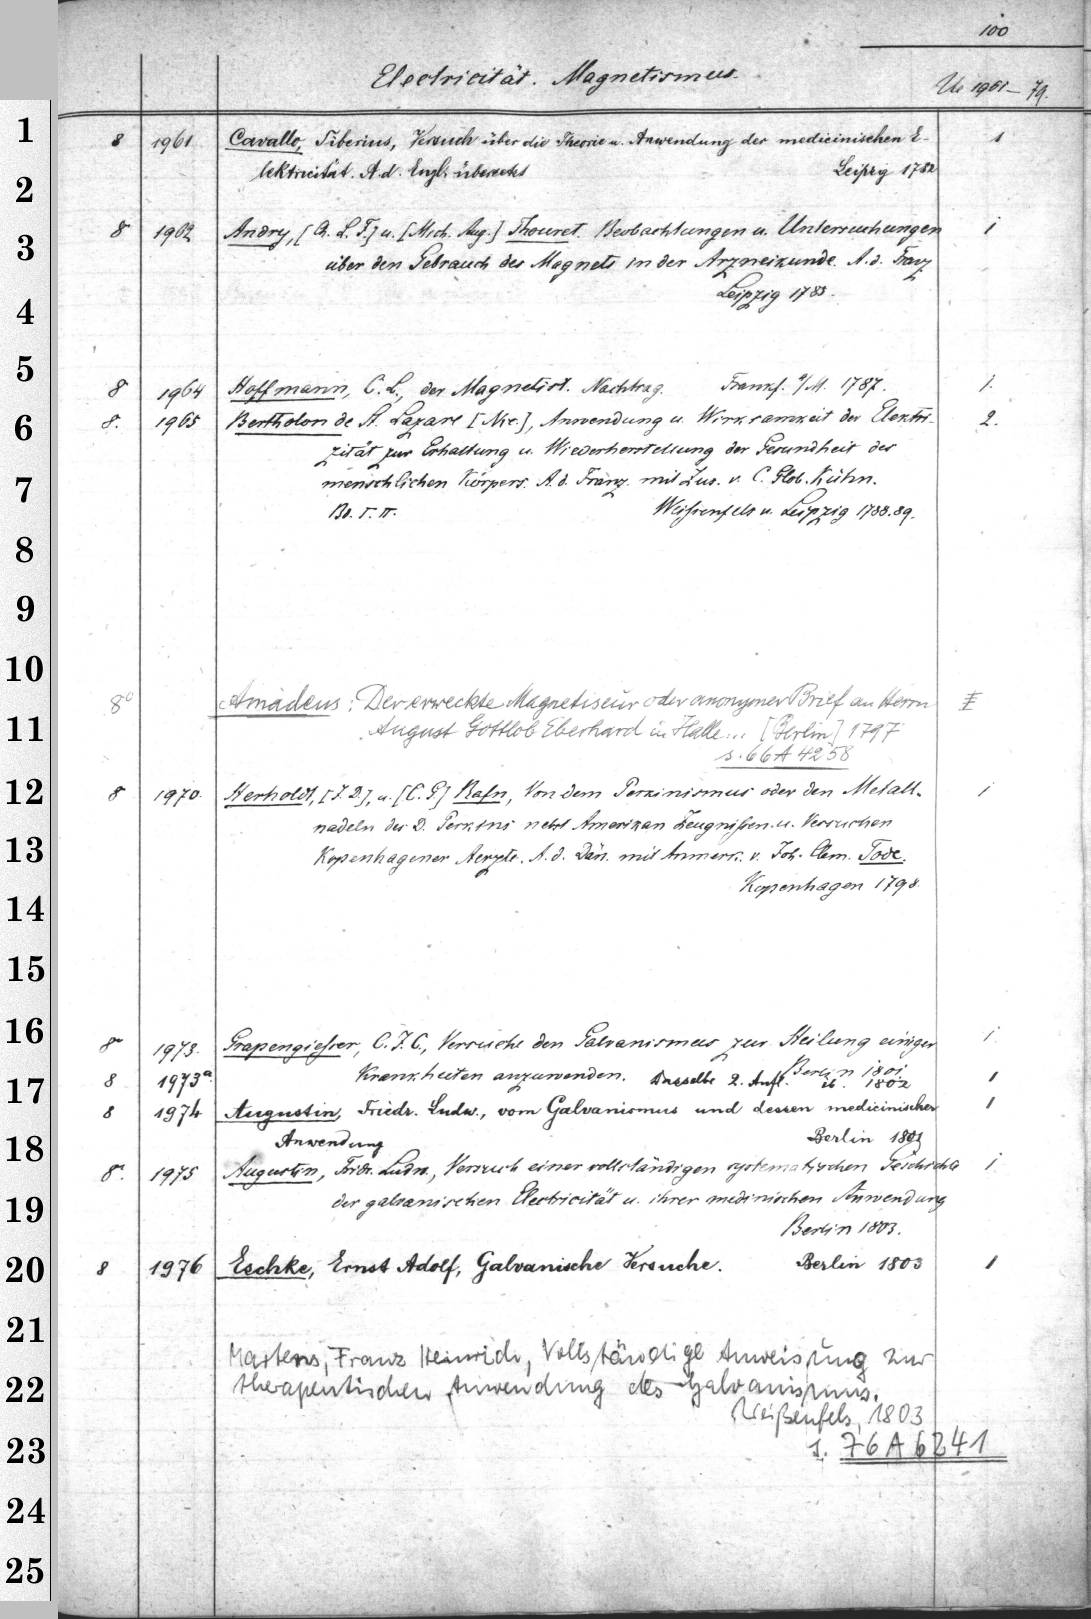 100
Electricität. Magnetismus.
Uc 1961–79.
1
8 1961 Cavallo, Tiberius, Versuch über die Theorie u. Anwendung der medicinischen E- 1
2
lektricität. A. d. Engl. übersetzt Leipzig 1782
3
8 1962 Andry, [Ch. L. F.] u. [Mich. Aug.] Thouret. Beobachtungen u. Untersuchungen 1
über den Gebrauch des Magnets in der Arzneikunde. A. d. Franz
4
Leipzig 1785.
5
8 1964 Hoffmann, C. L., der Magnetist. Nachtrag. Frankf. a/M. 1787. 1.
6
8. 1965 Bertholon de St. Lazare [Nic.], Anwendung u. Wirksamkeit der Elektri- 2.
zität zur Erhaltung u. Wiederherstellung der Gesundheit des
7
menschlichen Körpers. A. d. Franz. mit Zus. v. C. Glob. Kühn.
Bd. I. II. Weißenfels u. Leipzig 1788.89.
8
9
10
8° Amadeus: Der erweckte Magnetiseur oder anonymer Brief an Herrn I
11
August Gottlob Eberhard in Halle... [Berlin] 1797
s. 66 A 4258
12
8 1970. Herholdt, [J. D.], u. [C. G] Rafn, Von dem Perkinismus oder den Metall- 1
nadeln des D. Perkins nebst Amerikan Zeugnißen u. Versuchen
13
Kopenhagener Aerzte. A. d. Dän. mit Anmerk. v. Joh. Clem. Tode.
Kopenhagen 1798.
14
15
16
8° 1973. Grapengießer, C. J. C., Versuche den Galvanismus zur Heilung einiger 1
Krankheiten anzuwenden. Berlin 1801.
17
8 1973a. Dasselbe 2. Aufl. ib. 1802 1
8 1974 Augustin, Friedr. Ludw., vom Galvanismus und dessen medicinischer 1
18
Anwendung Berlin 1801
8°. 1975 Augustin, Fridr. Ludw., Versuch einer vollständigen systematischen Geschichte 1
19
der galvanischen Electricität u. ihrer medinischen Anwendung
Berlin 1803.
20
8 1976 Eschke, Ernst Adolf, Galvanische Versuche. Berlin 1803 1
21
Martens, Franz Heinrich, Vollständige Anweisung zur
22
therapeutischen Anwendung des Galvanismus.
Weißenfels, 1803
23
s. 76 A 6241
24
25